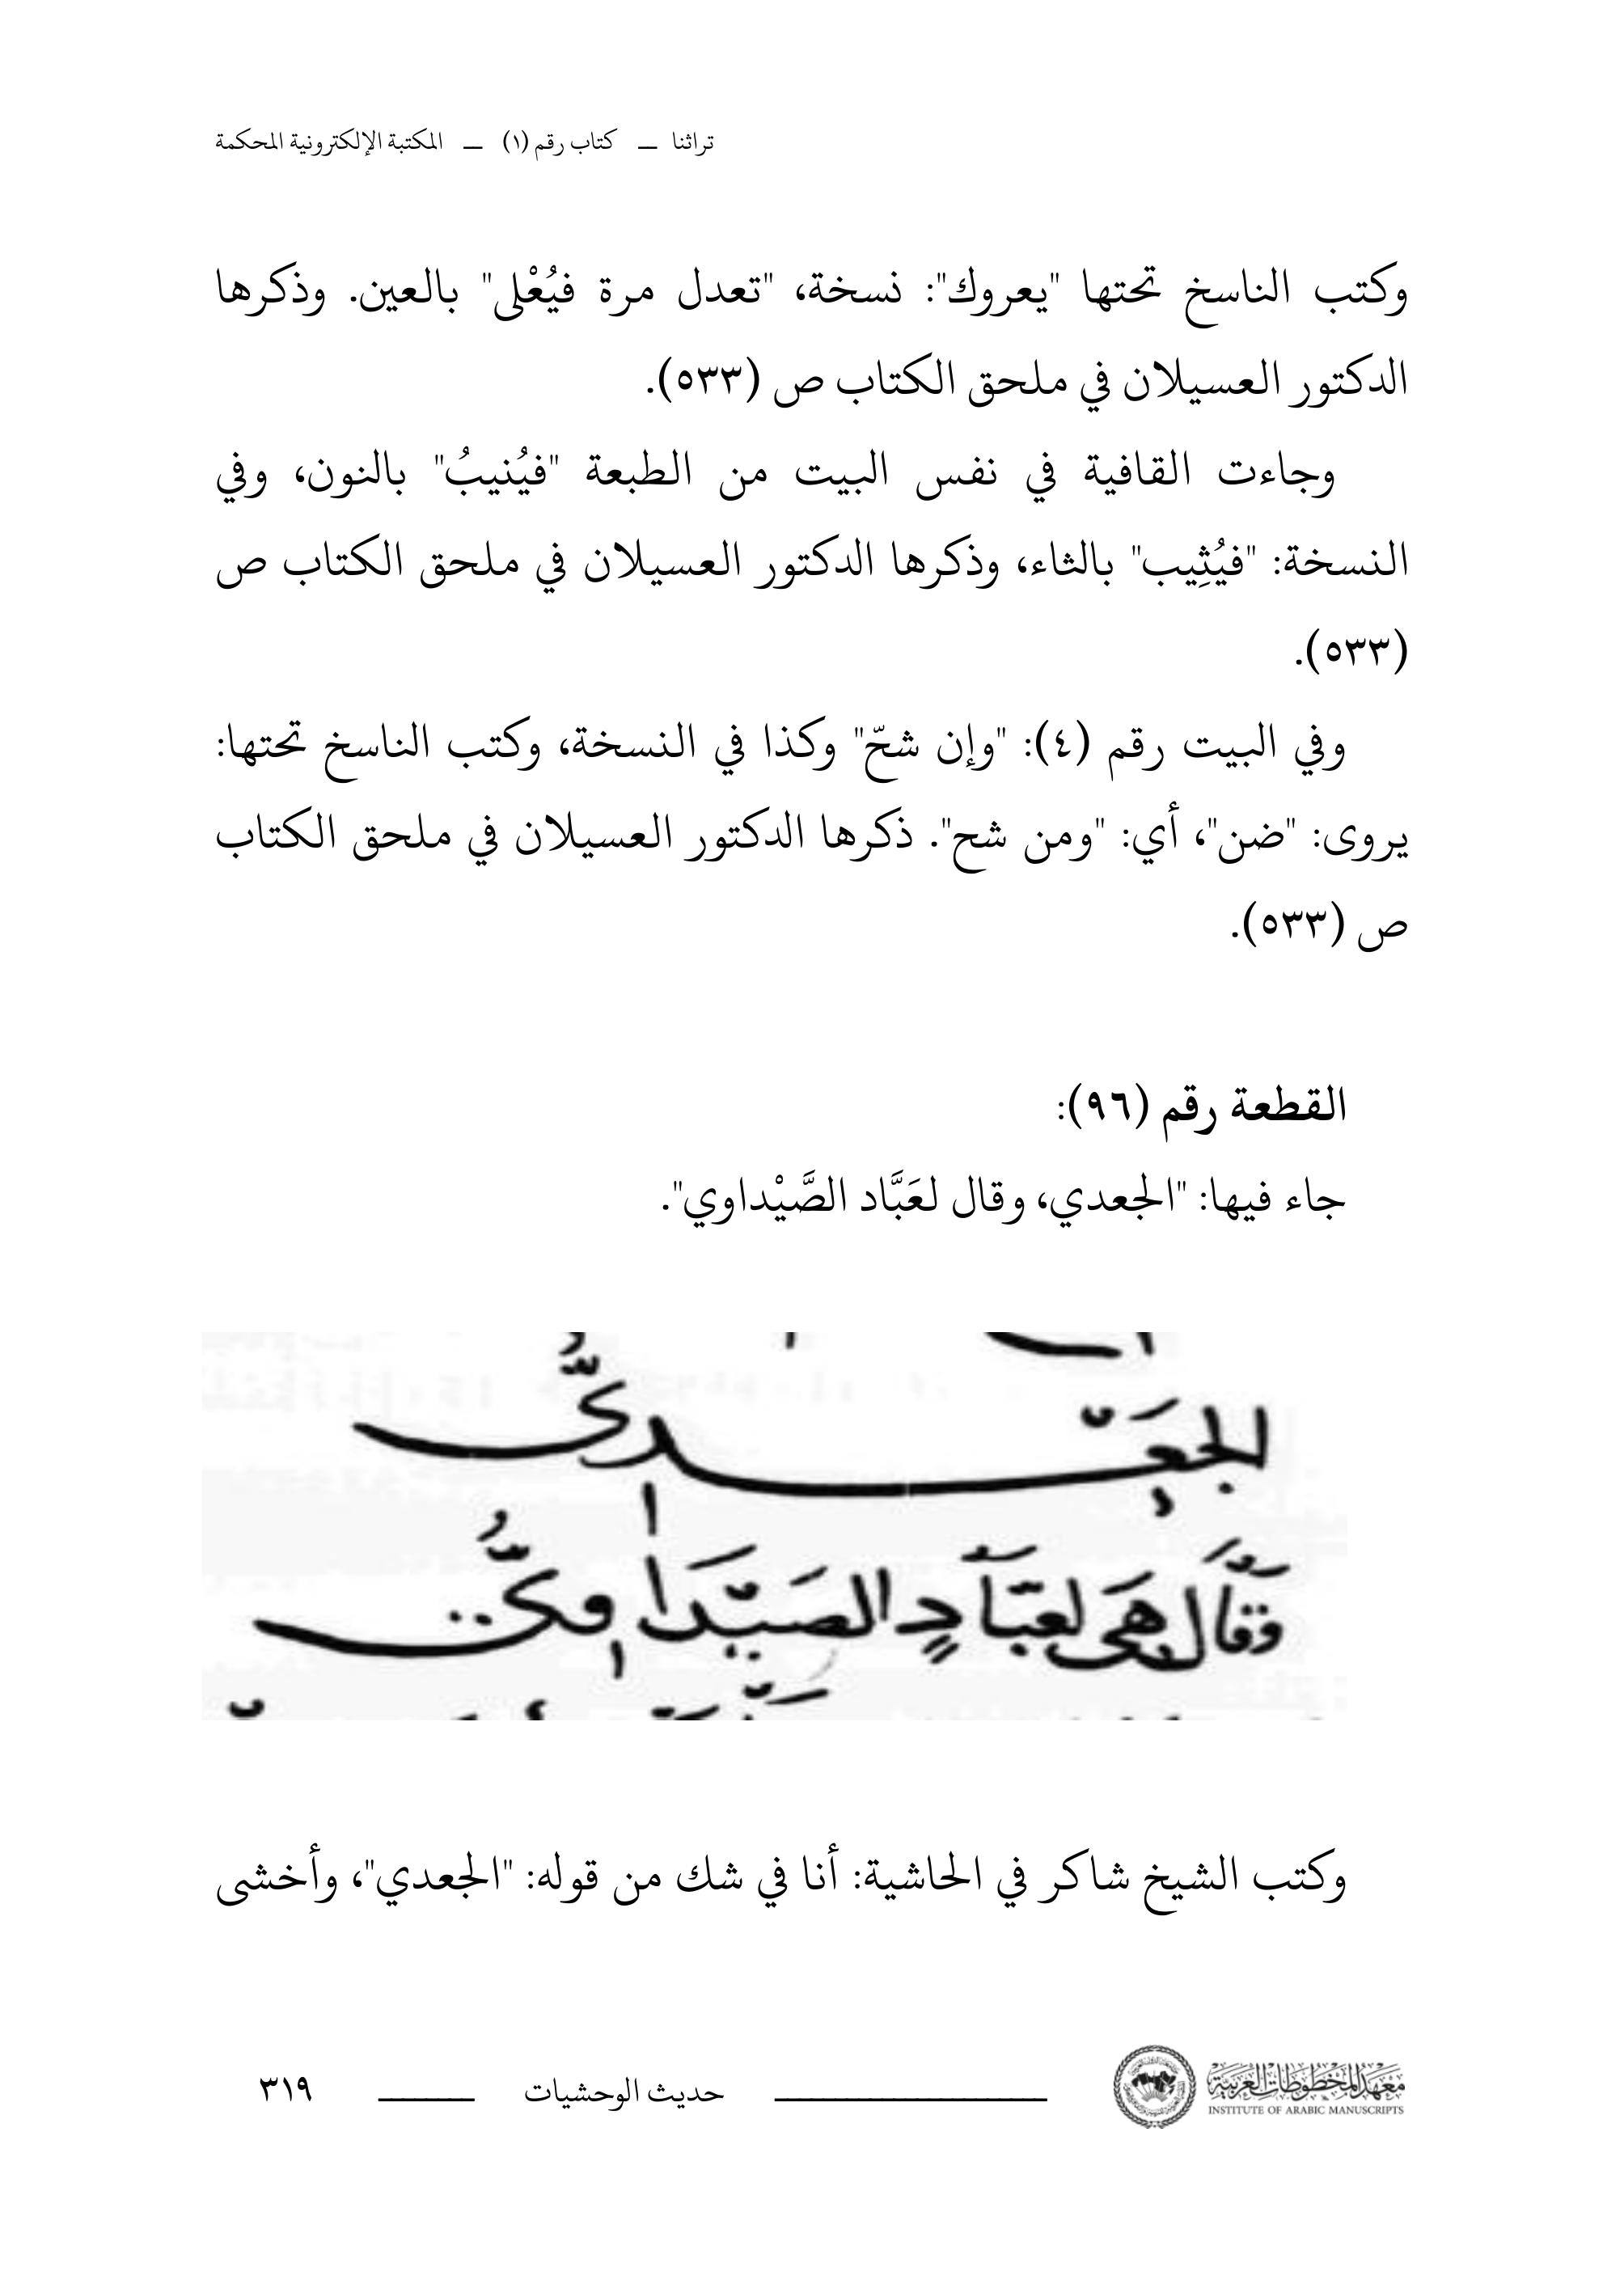 تراثنا — كتاب رقم (١) — المكتبة الإلكترونية المحكمة
وكتب الناسخ تحتها "يعروك": نسخة، "تعدل مرة فيُعْلى" بالعين. وذكرها
الدكتور العسيلان في ملحق الكتاب ص (٥٣٣).
وجاءت القافية في نفس البيت من الطبعة "فيُنيبُ" بالنون، وفي
النسخة: "فيُثِيب" بالثاء، وذكرها الدكتور العسيلان في ملحق الكتاب ص
(٥٣٣).
وفي البيت رقم (٤): "وإن شحّ" وكذا في النسخة، وكتب الناسخ تحتها:
يروى: "ضن"، أي: "ومن شح". ذكرها الدكتور العسيلان في ملحق الكتاب
ص (٥٣٣).
القطعة رقم (٩٦):
جاء فيها: "الجعدي، وقال لعَبَّاد الصَّيْداوي".
الجَعْدِيُّ
وقال لعَبَّادٍ الصَيْدَاوِيُّ
وكتب الشيخ شاكر في الحاشية: أنا في شك من قوله: "الجعدي"، وأخشى
معهد المخطوطات العربية
INSTITUTE OF ARABIC MANUSCRIPTS
حديث الوحشيات
٣١٩